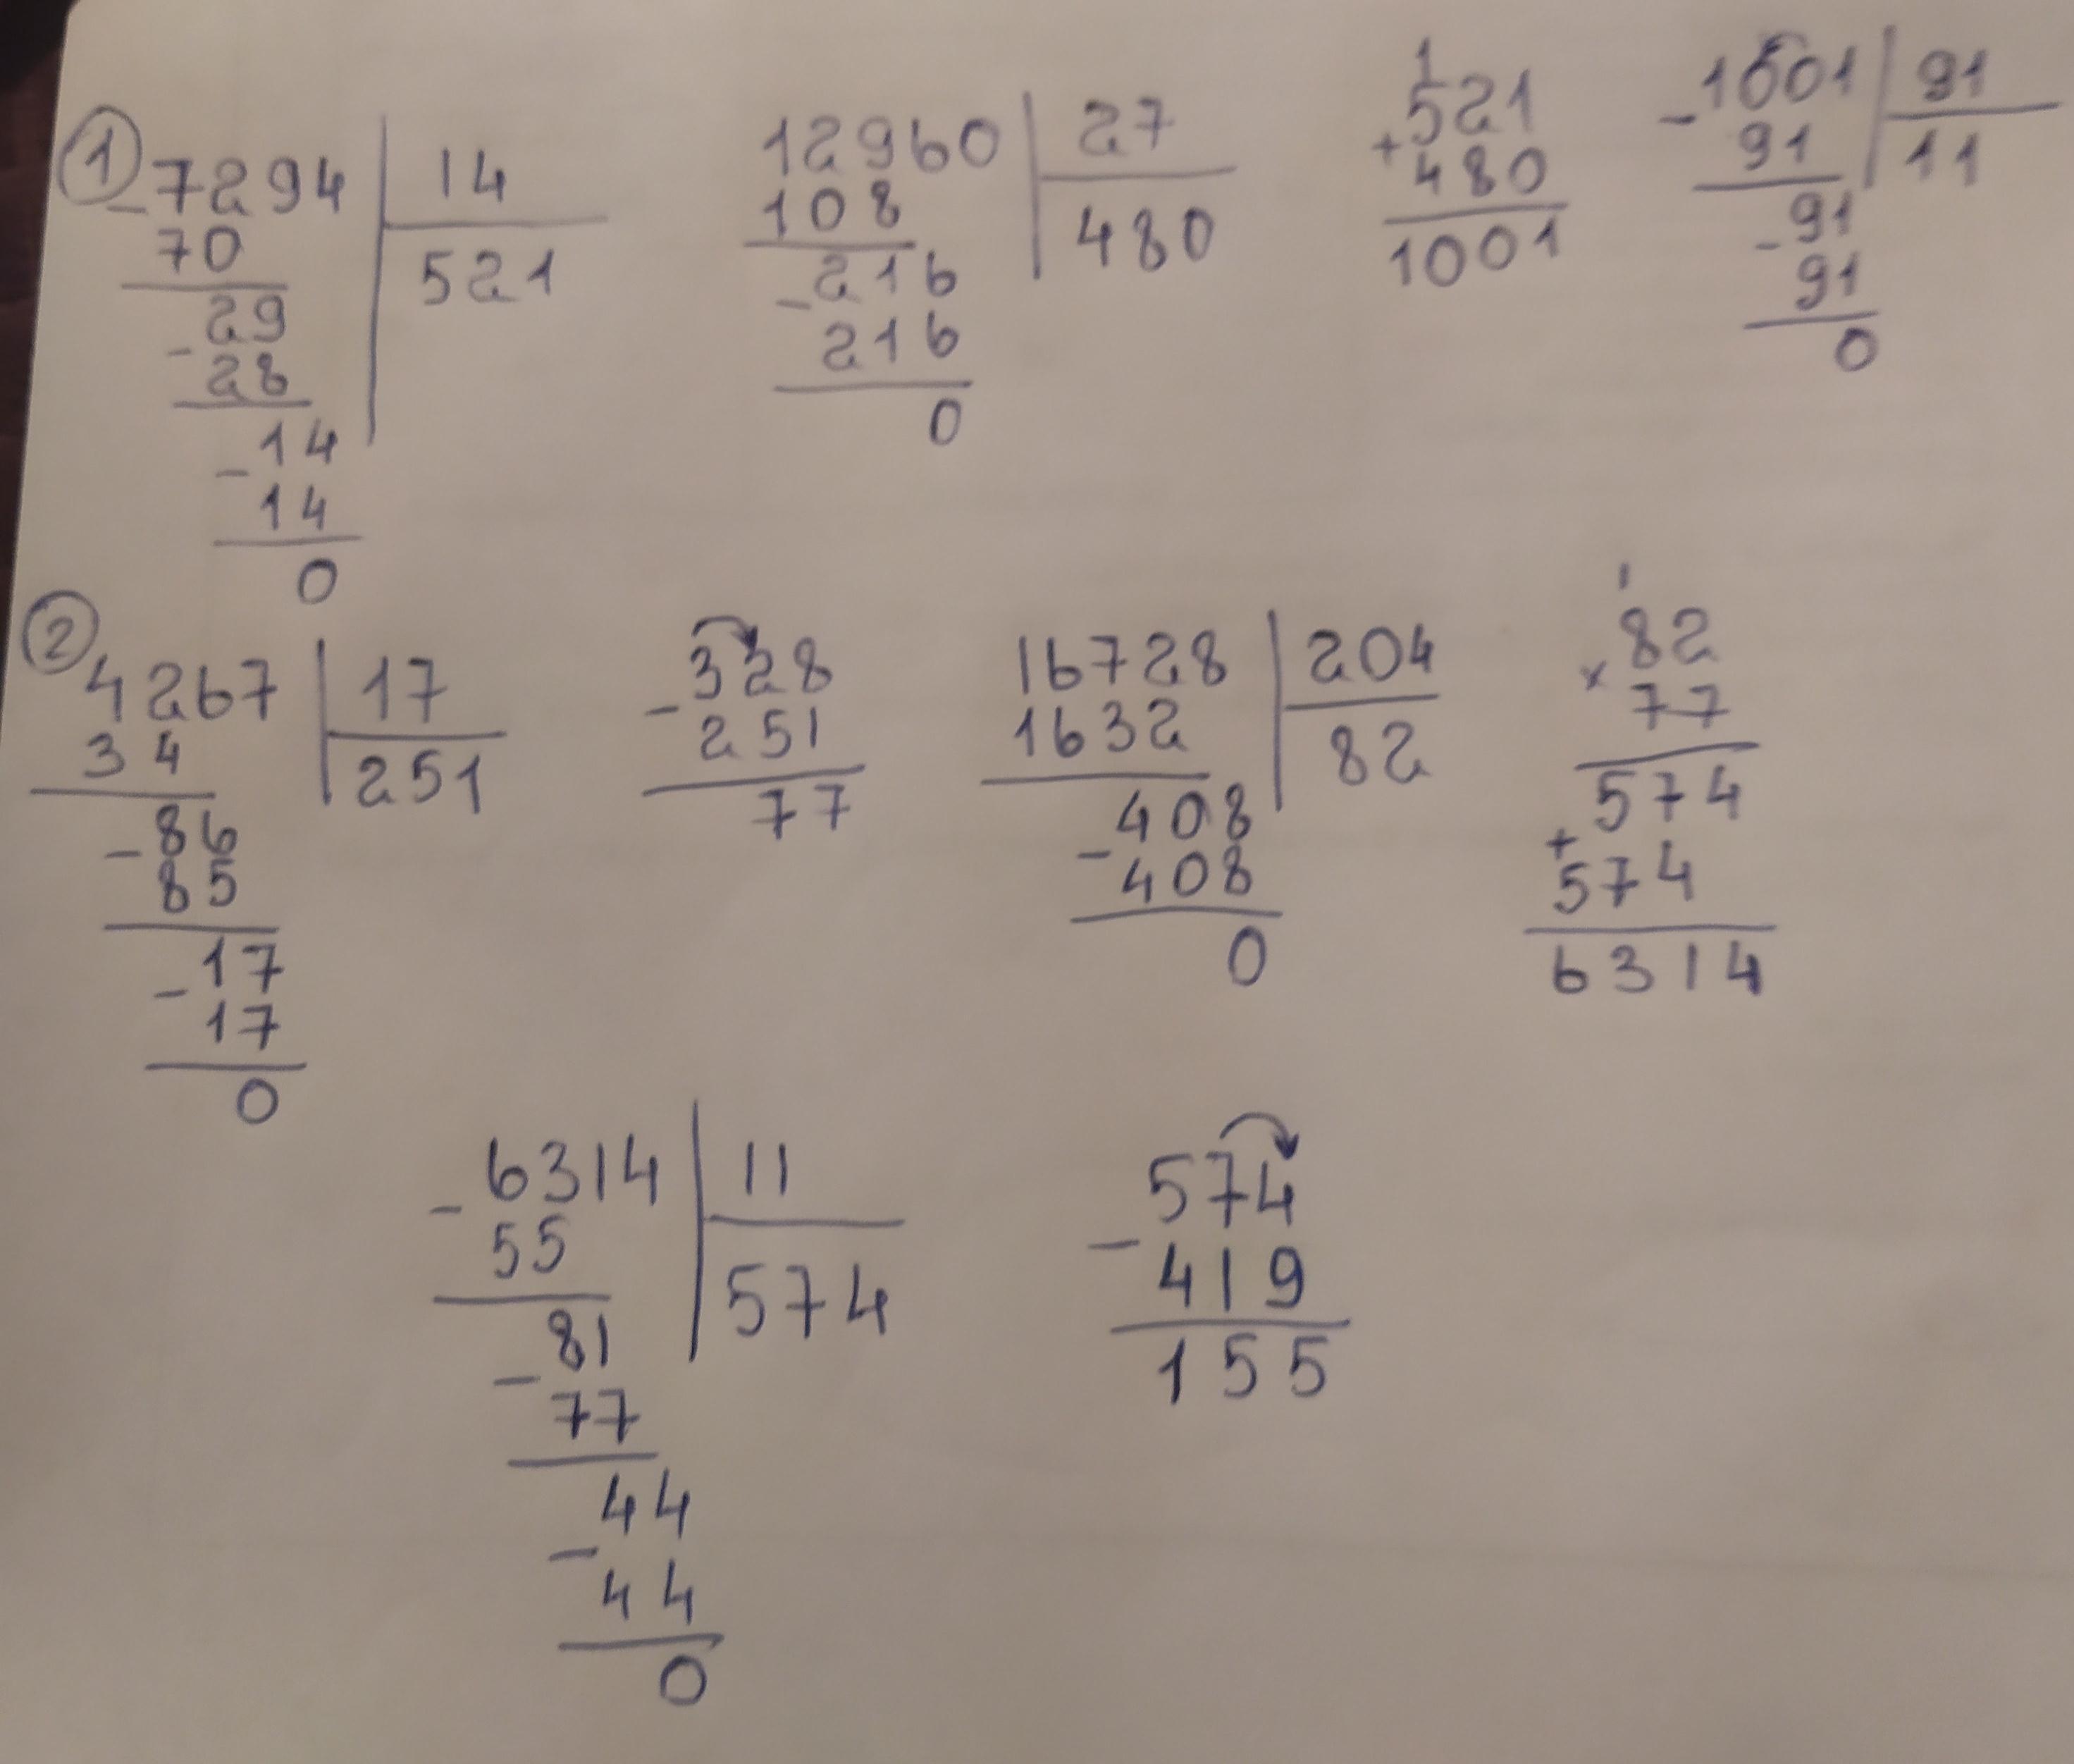 ① 7294 | 14
- 70 | 521
29
- 28
14
- 14
0
12960 | 27
108 | 480
216
- 216
0
1
521
+ 480
1001
- 1001 | 91
91 | 11
91
- 91
0
② 4267 | 17
34 | 251
- 86
85
- 17
17
0
328
- 251
77
16728 | 204
1632 | 82
- 408
408
0
1
82
× 77
574
+ 574
6314
- 6314 | 11
55 | 574
- 81
77
- 44
44
0
574
- 419
155